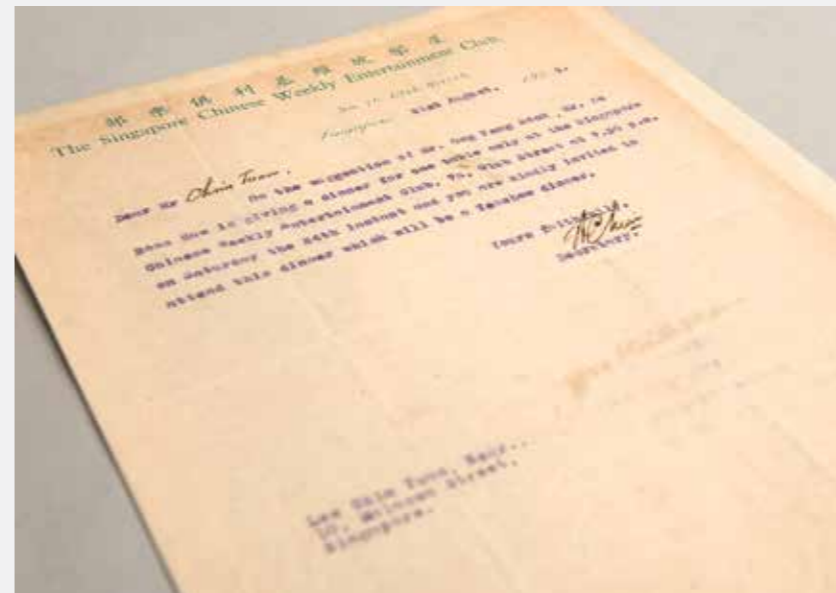 星架坡維基利俱樂部
The Singapore Chinese Weekly Entertainment Club.
Club Street
Singapore, 21st August,
Dear Mr
On the suggestion of Mr. Ong , Mr.
is giving a dinner for one table only at the Singapore
Chinese Weekly Entertainment Club, 76, Club Street at 7.30 p.m.
on Saturday the 24th instant and you are kindly invited to
attend this dinner which will be a dinner.
Yours faithfully,
Secretary.
Lee Tuan, Esqr.,
Street,
Singapore.